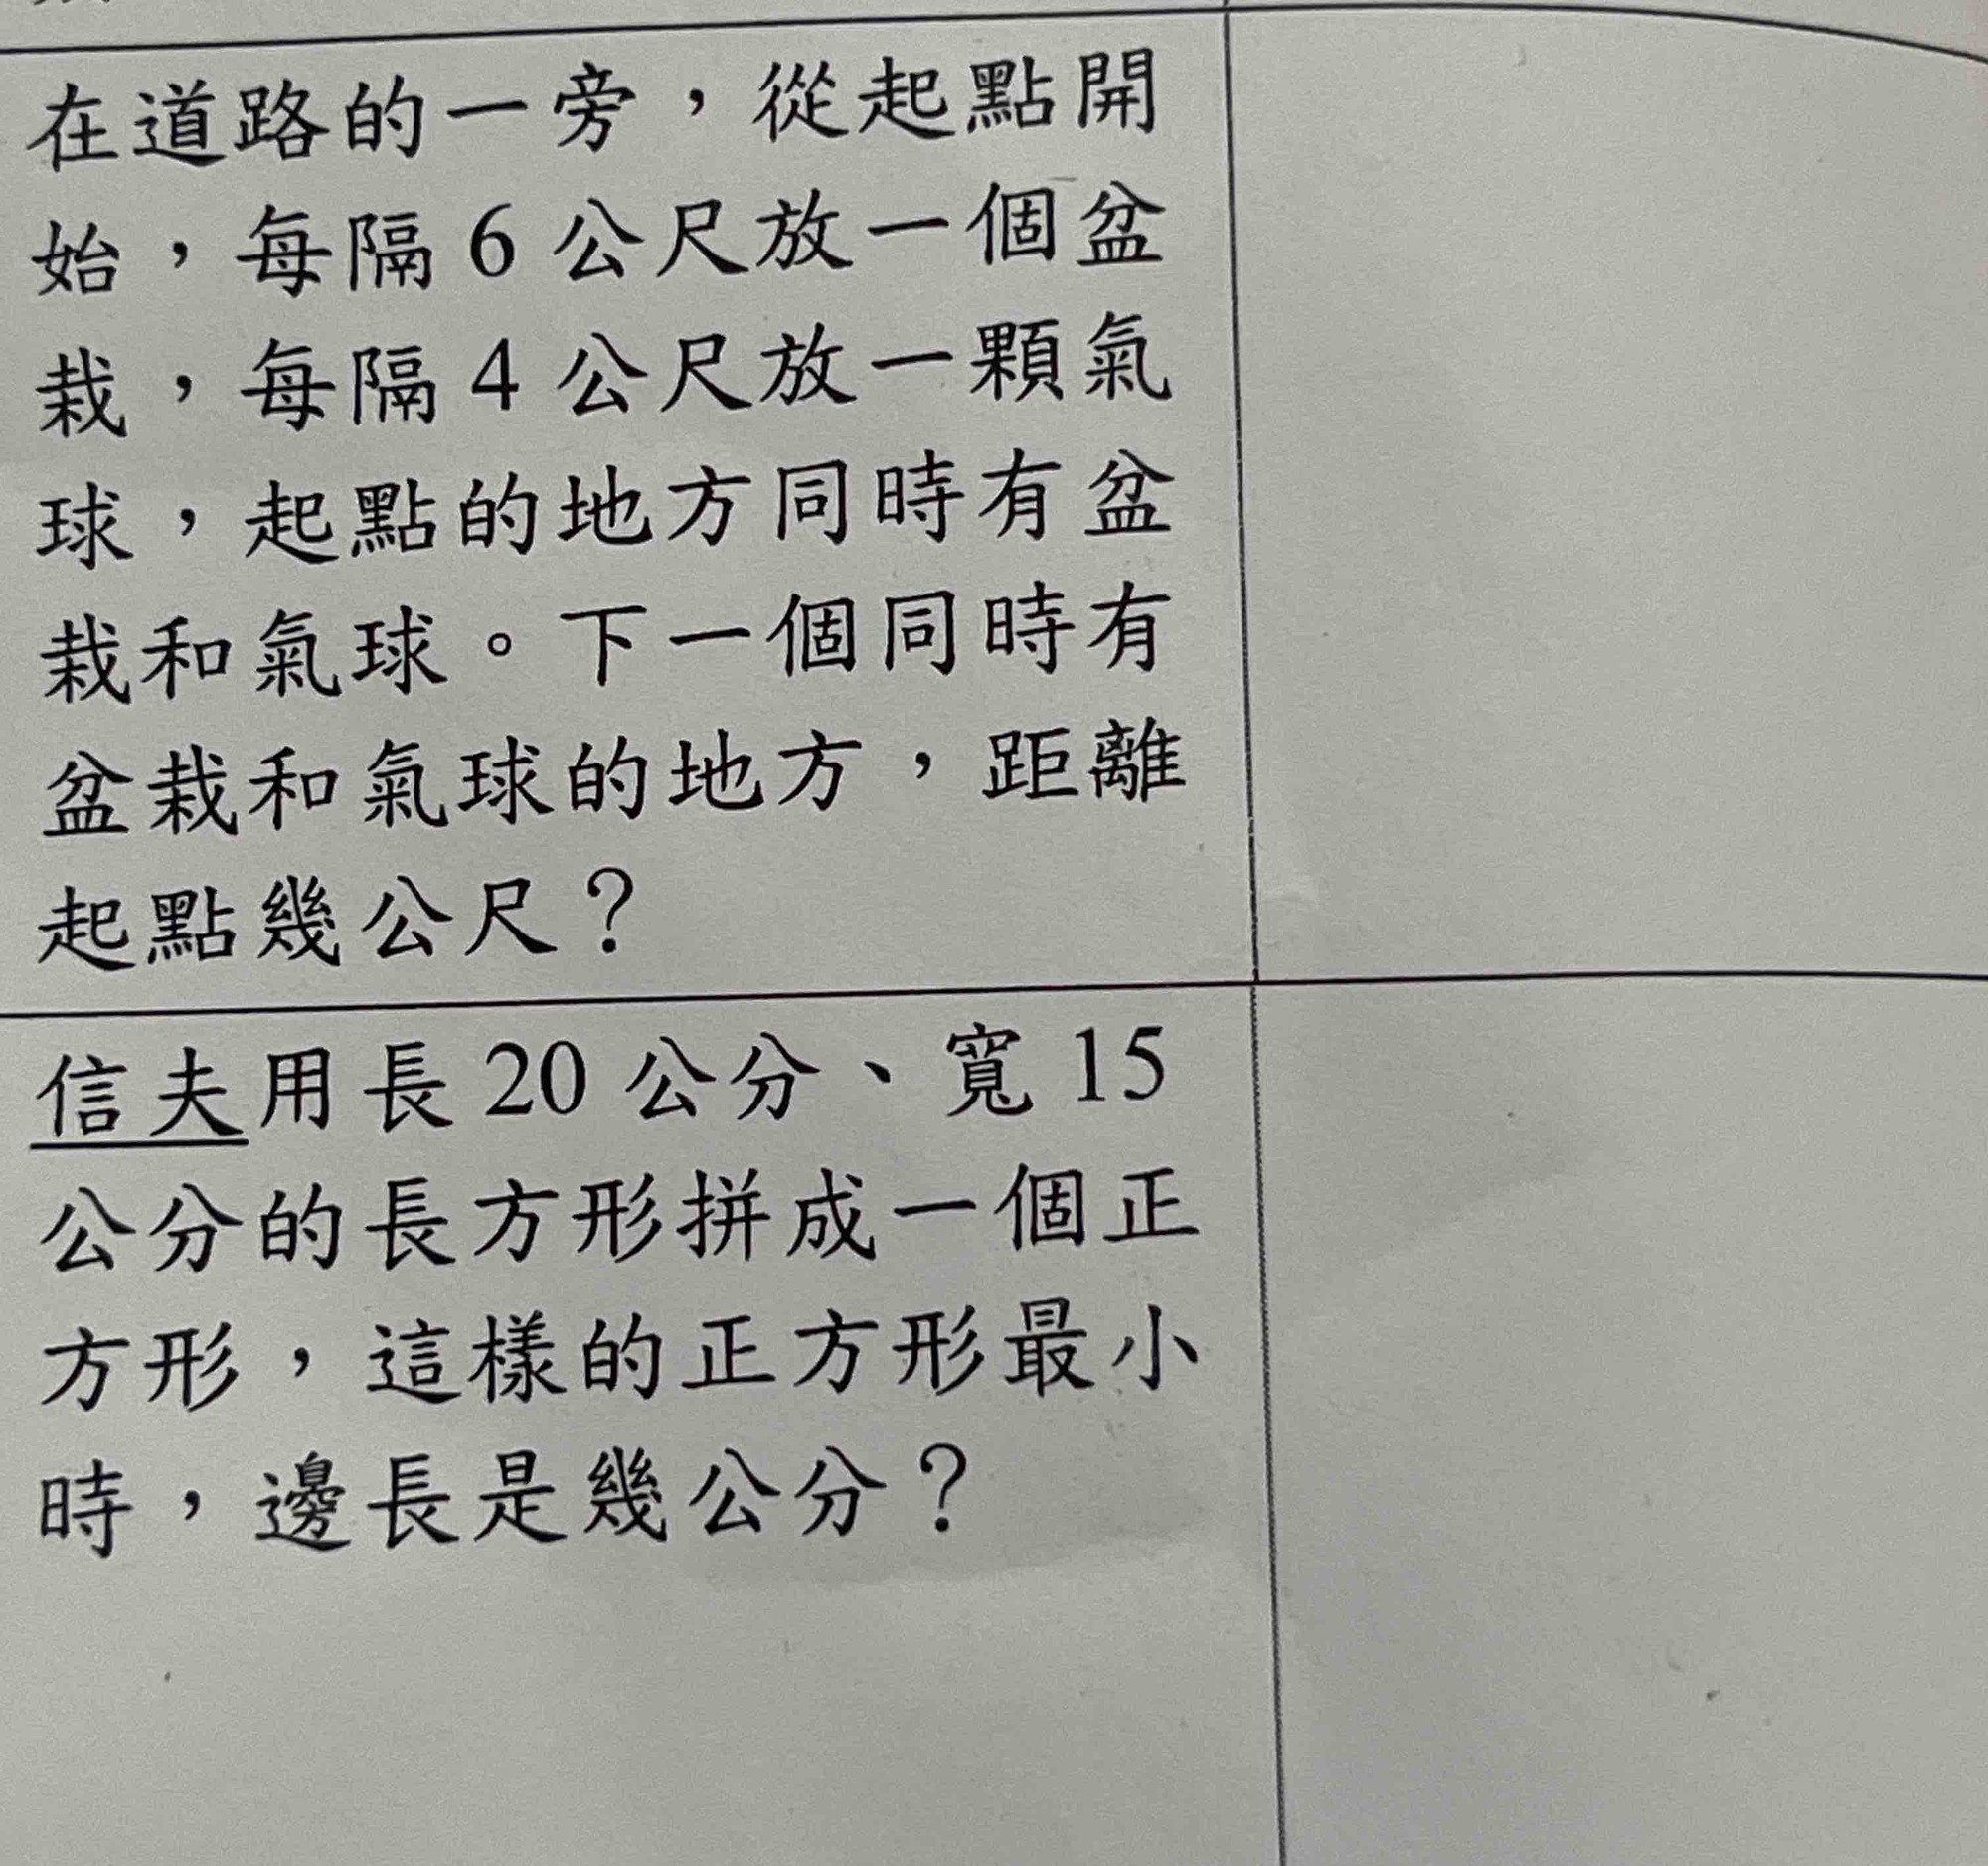 在道路的一旁，從起點開
始，每隔 6 公尺放一個盆
栽，每隔 4 公尺放一顆氣
球，起點的地方同時有盆
栽和氣球。下一個同時有
盆栽和氣球的地方，距離
起點幾公尺？
信夫用長 20 公分、寬 15
公分的長方形拼成一個正
方形，這樣的正方形最小
時，邊長是幾公分？